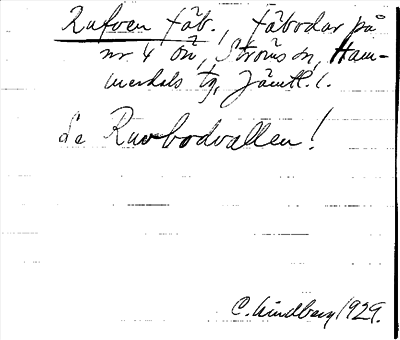 Rufven fäb., Fäbodar på
nr 4 Ön, Ströms sn, Ham-
merdals tg, Jämtl. l.
Se Ruvbodvallen!
C. Lindberg 1929.